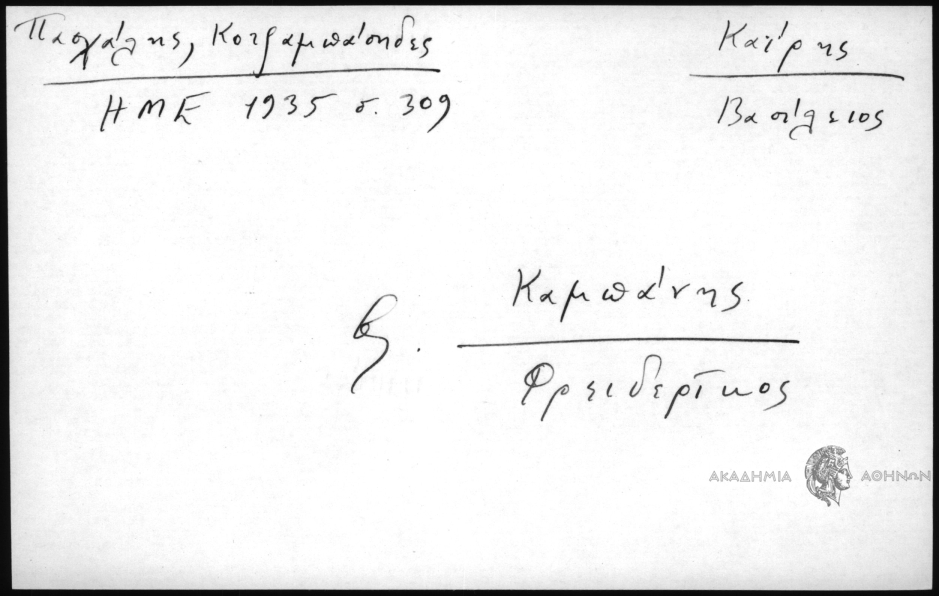 Πασχάλης, Κοτζαμπάσηδες
ΗΜΕ 1935 σ. 309
Καΐρης
Βασίλειος
Καμπάνης
βλ.
Φρειδερῖκος
ΑΚΑΔΗΜΙΑ ΑΘΗΝΩΝ